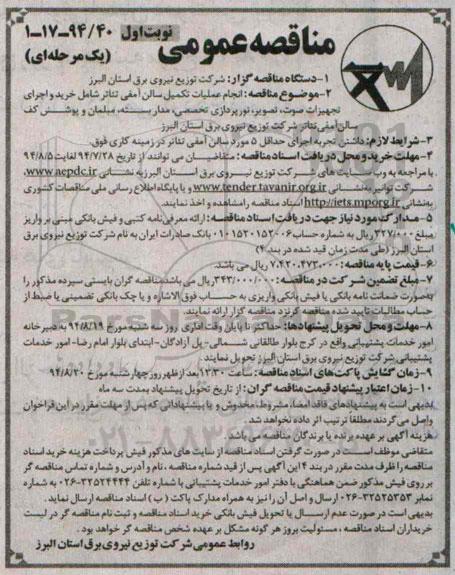 مناقصه عمومی
نوبت اول
۱-۱۷-۹۴/۴۰
(یک مرحله ای)
۱-دستگاه مناقصه گزار: شرکت توزیع نیروی برق استان البرز
۲-موضوع مناقصه: انجام عملیات تکمیل سالن آمفی تئاتر شامل خرید و اجرای
تجهیزات صوت، تصویر، نورپردازی تخصصی، مدار بسته، مبلمان و پوشش کف
سالن آمفی تئاتر شرکت توزیع نیروی برق استان البرز
۳-شرایط لازم: داشتن تجربه اجرای حداقل ۵ مورد سالن آمفی تئاتر در زمینه کاری فوق.
۴-مهلت خرید و محل دریافت اسناد مناقصه: متقاضیان می توانند از تاریخ ۹۴/۷/۲۸ لغایت ۹۴/۸/۵
با مراجعه به وب سایت های شرکت توزیع نیروی برق استان البرز به نشانی www.aepdc.ir،
شرکت توانیر به نشانی www.tender.tavanir.org.ir و یا پایگاه اطلاع رسانی ملی مناقصات کشوری
به نشانی http://iets.mporg.ir اسناد مناقصه را مشاهده و اخذ نمایند.
۵-مدارک مورد نیاز جهت دریافت اسناد مناقصه: ارائه معرفی نامه کتبی و فیش بانکی مبنی بر واریز
مبلغ ۳۲۷/۰۰۰ ریال به شماره حساب ۰۱۰۱۵۲۰۱۵۲۰۰۶ بانک صادرات ایران به نام شرکت توزیع نیروی برق
استان البرز (طی مدت زمان قید شده در بند ۴)
۶-قیمت پایه مناقصه: ۷،۴۲۰،۴۷۳،۰۰۰ ریال می باشد.
۷-مبلغ تضمین شرکت در مناقصه: ۳۴۳/۰۰۰/۰۰۰ ریال می باشد. مناقصه گران بایستی سپرده مذکور را
به صورت ضمانت نامه بانکی یا فیش بانکی واریزی به حساب فوق الاشاره و یا چک بانکی تضمینی یا ضبط از
حساب مطالبات تایید شده مناقصه گر نزد مناقصه گزار ارائه نمایند.
۸-مهلت و محل تحویل پیشنهادها: حداکثر تا پایان وقت اداری روز سه شنبه مورخ ۹۴/۸/۱۹ به دبیرخانه
امور خدمات پشتیبانی واقع در کرج بلوار طالقانی شمالی-پل آزادگان-ابتدای بلوار امام رضا-امور خدمات
پشتیبانی شرکت توزیع نیروی برق استان البرز تحویل نمایند.
۹-زمان گشایش پاکت های اسناد مناقصه: ساعت ۱۳:۳۰ بعد از ظهر روز چهارشنبه مورخ ۹۴/۸/۲۰
۱۰-زمان اعتبار پیشنهاد قیمت مناقصه گران: از تاریخ تحویل پیشنهاد بمدت سه ماه
بدیهی است به پیشنهادهای فاقد امضاء، مشروط، مخدوش و یا پیشنهاداتی که پس از مهلت مقرر در این فراخوان
واصل می گردند مطلقاً ترتیب اثر داده نخواهد شد.
هزینه آگهی بر عهده برنده یا برندگان مناقصه می باشد.
متقاضی موظف است در صورت گرفتن اسناد مناقصه از سایت های مذکور فیش پرداخت هزینه خرید اسناد
مناقصه را ظرف مدت مقرر در بند ۴ این آگهی پس از قید شماره مناقصه، نام و آدرس و شماره تماس مناقصه گر
بر روی فیش مذکور ضمن هماهنگی با دفتر امور خدمات پشتیبانی با شماره تلفن ۳۲۵۲۴۴۴۴-۰۲۶ به شماره
نمابر ۳۲۵۲۵۳۵۳-۰۲۶ ارسال و اصل آن را نیز به همراه مدارک پاکت (ب) اسناد مناقصه ارسال نماید.
بدیهی است در صورت عدم ارسال یا تحویل فیش بانکی خرید اسناد مناقصه و ثبت نام مناقصه گر در لیست
خریداران اسناد مناقصه، مسئولیت بروز هر گونه مشکل بر عهده شخص مناقصه گر خواهد بود.
روابط عمومی شرکت توزیع نیروی برق استان البرز